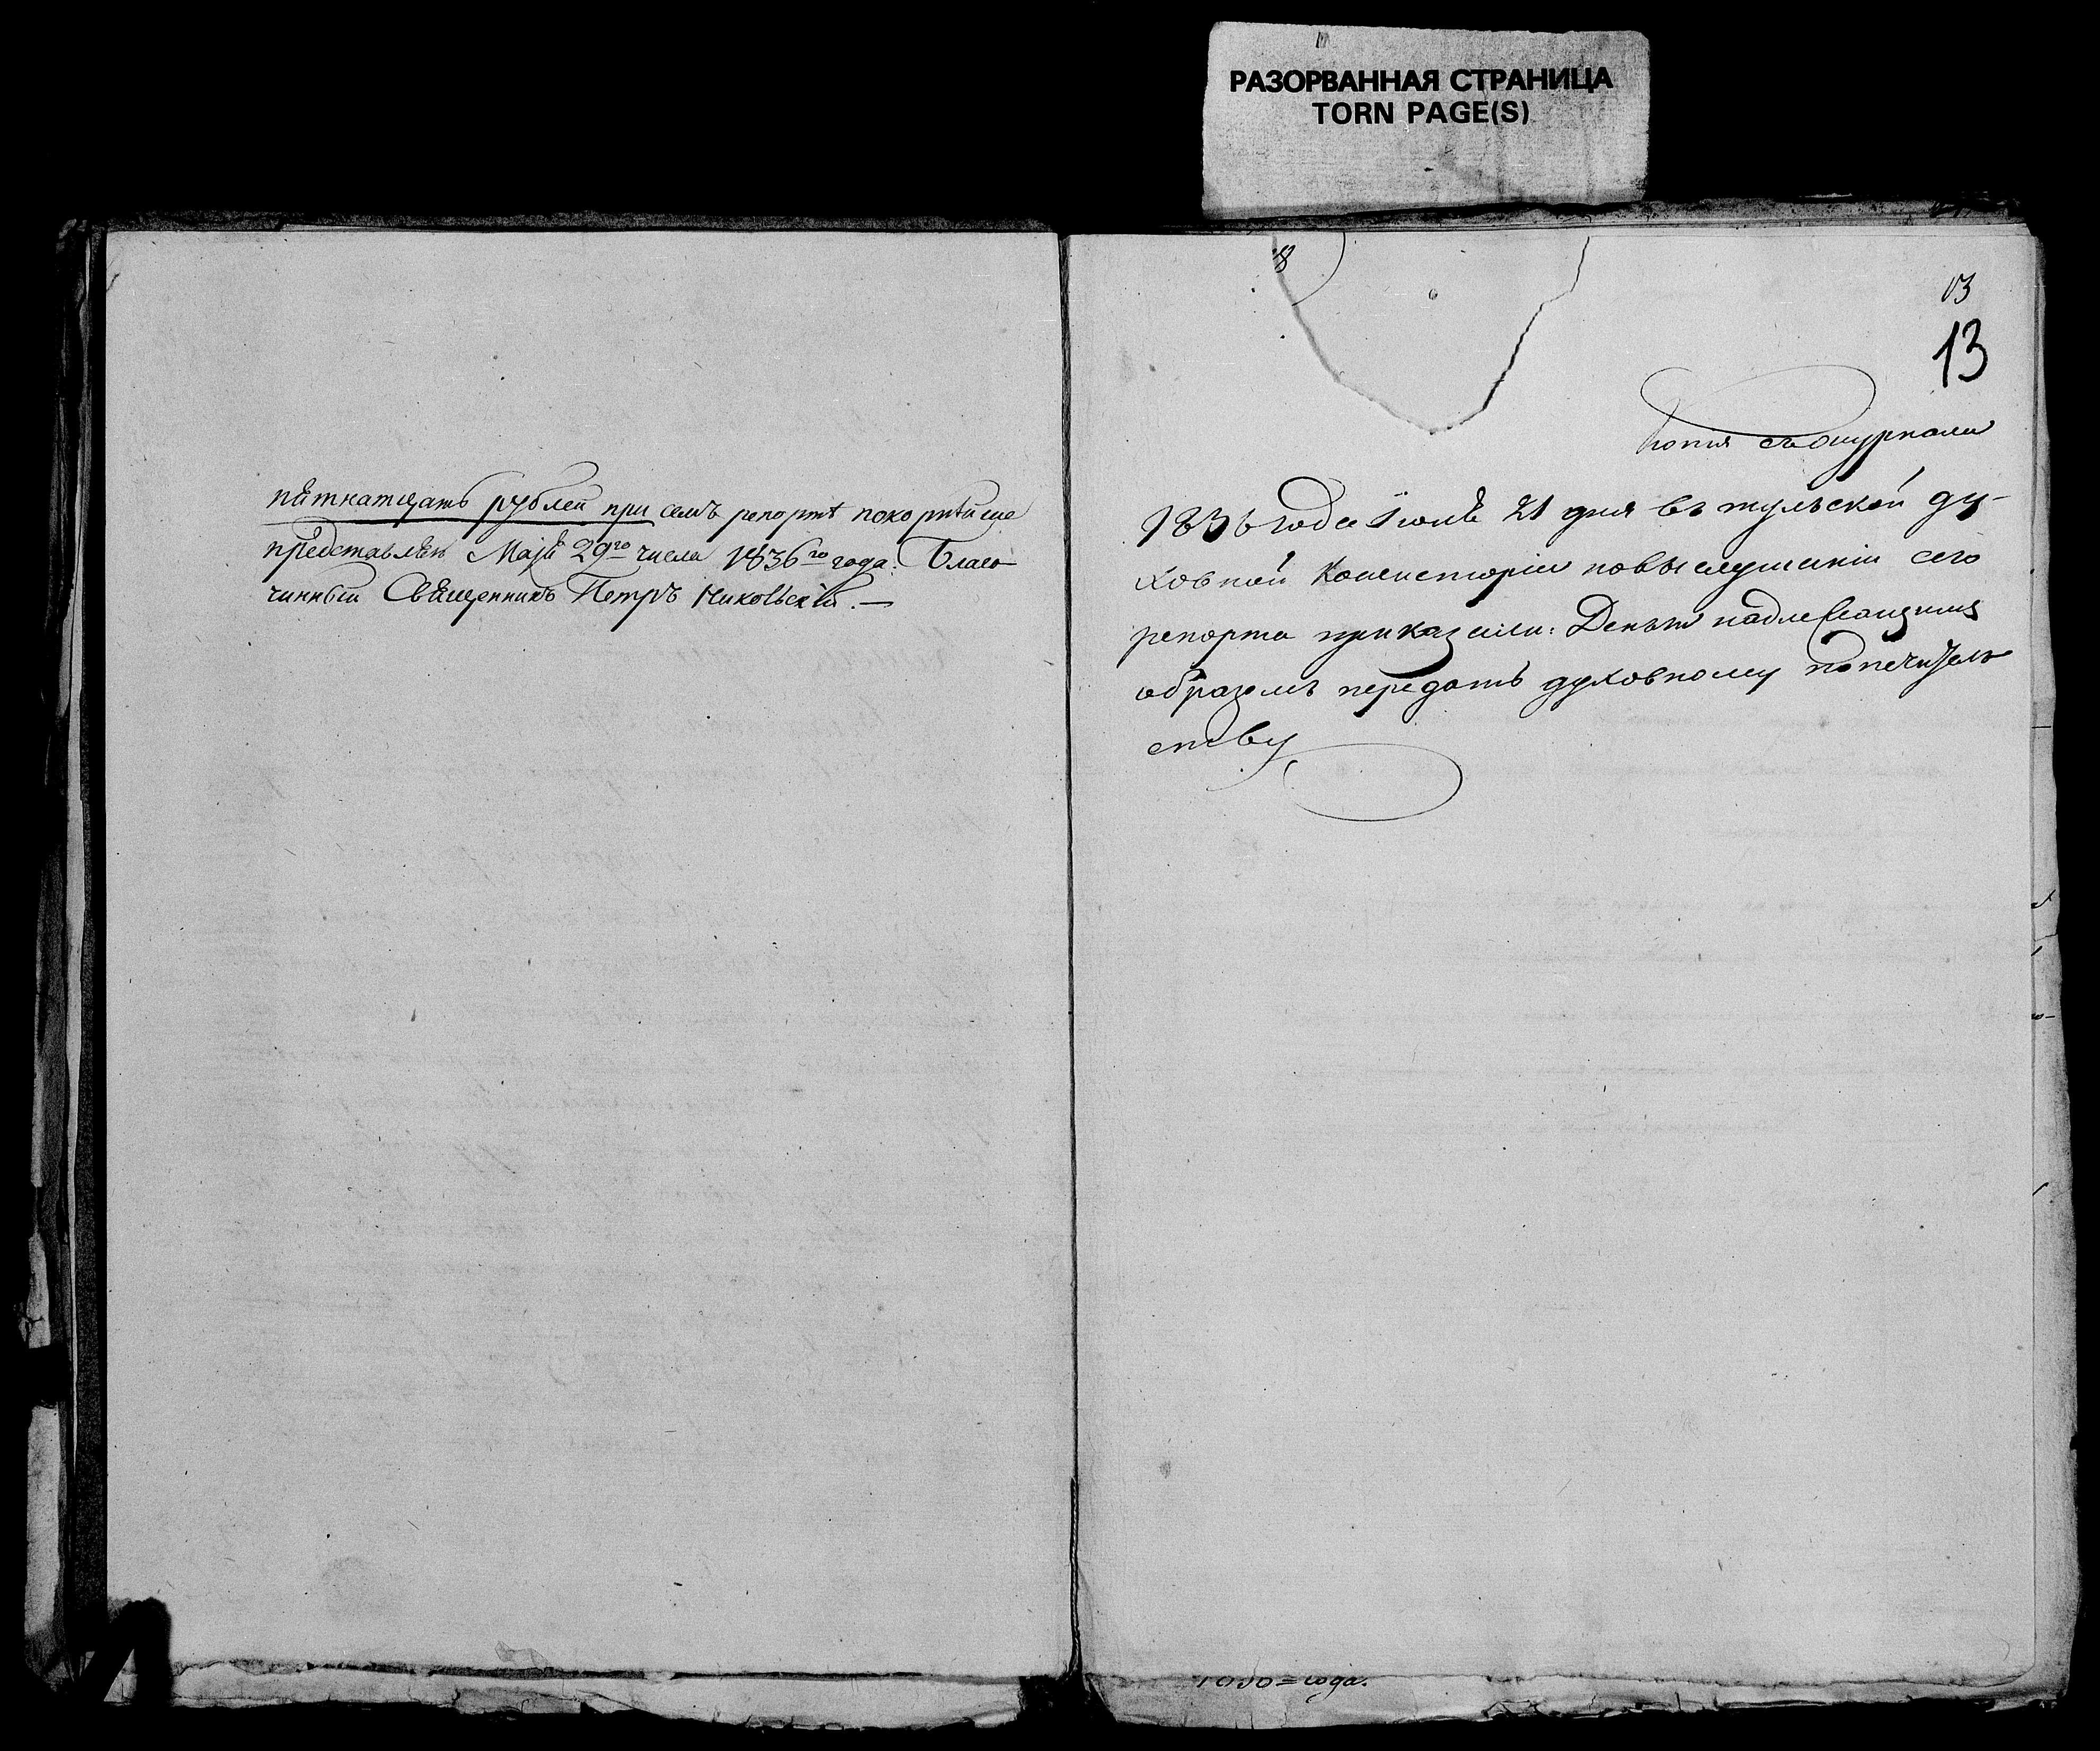 РАЗОРВАННАЯ СТРАНИЦА
TORN PAGE(S)
пятнатцать рублей при семъ репортѣ покорнѣйше
представляю Маія 29го числа 1836го года. Благо
чинный Священникъ Петръ Никольскій. —
8
13
13
Копія съ журнала
1836 года Іюля 21 дня въ тульской ду-
ховной Консисторіи по выслушаніи сего
репорта приказали: Деньги надлежащимъ
образомъ передать духовному попечитель
ству
года.